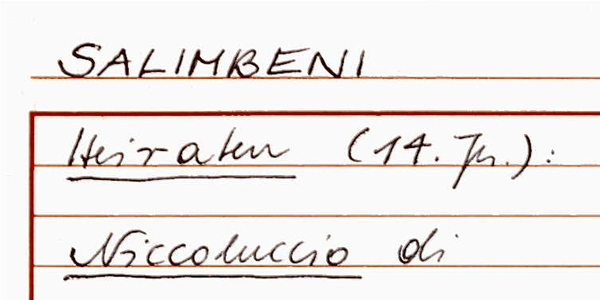 SALIMBENI
Heiraten (14. Jh.):
Niccoluccio di